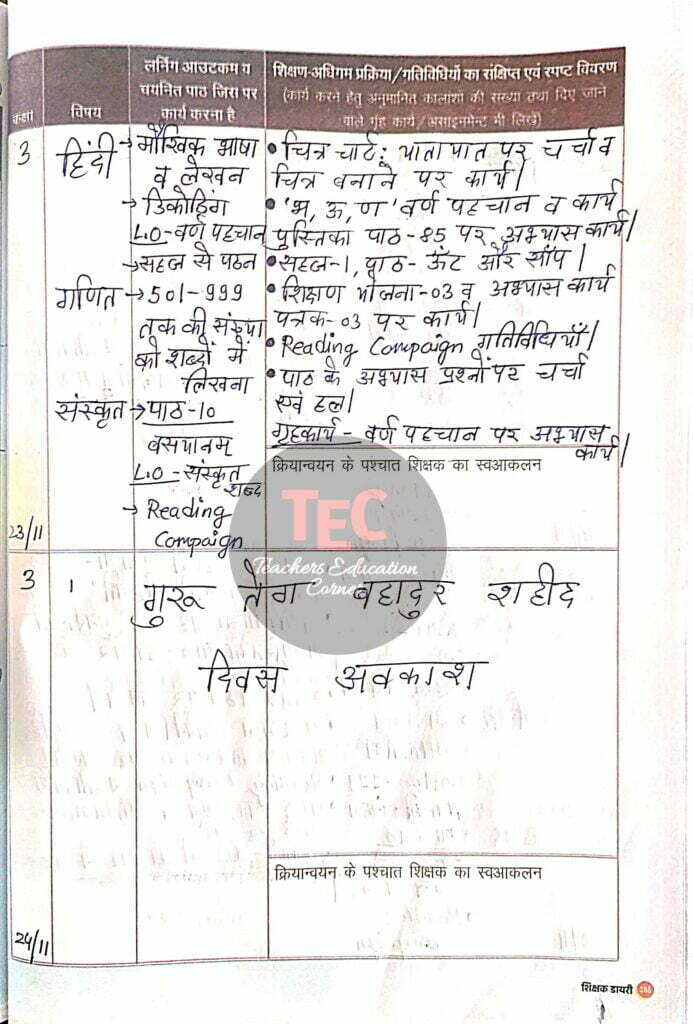 कक्षा
विषय
लर्निंग आउटकम व
चयनित पाठ जिस पर
कार्य करना है
शिक्षण-अधिगम प्रक्रिया/गतिविधियों का संक्षिप्त एवं स्पष्ट विवरण
(कार्य करने हेतु अनुमानित कालांशों की संख्या तथा दिए जाने
वाले गृह कार्य/असाइनमेन्ट भी लिखें)
3
हिंदी
→ मौखिक भाषा
व लेखन
→ डिकोडिंग
L.O-वर्ण पहचान
→ सहज से पठन
गणित
→ 501-999
तक की संख्या
को शब्दों में
लिखना
संस्कृत
→ पाठ-10
L.O-संस्कृत
शब्द
→ Reading
Compaign
23/11
• चित्र चार्ट: यातायात पर चर्चा व
चित्र बनाने पर कार्य।
• 'भ, ऊ, ण' वर्ण पहचान व कार्य
पुस्तिका पाठ-85 पर अभ्यास कार्य।
• सहज-1, पाठ- ऊँट और साँप।
• शिक्षण योजना-03 व अभ्यास कार्य
पत्रक-03 पर कार्य।
• Reading Compaign गतिविधियाँ।
• पाठ के अभ्यास प्रश्नों पर चर्चा
एवं हल।
गृहकार्य - वर्ण पहचान पर अभ्यास
कार्य।
क्रियान्वयन के पश्चात शिक्षक का स्वआकलन
TEC
Teachers Education
Corner
3
गुरू तेग बहादुर शहीद
दिवस अवकाश
क्रियान्वयन के पश्चात शिक्षक का स्वआकलन
24/11
शिक्षक डायरी